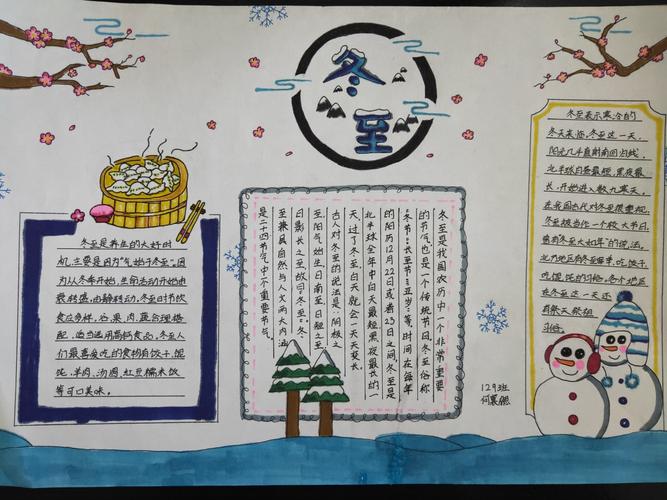 冬至
冬至是养生的大好时
机,主要是因为"气始于冬至"。因
为从冬季开始,生命活动开始由
衰转盛,由静转动。冬至时节饮
食应多样,谷、果、肉、蔬合理搭
配,适当选用高钙食品。冬至人
们最喜欢吃的食物有饺子、馄
饨、羊肉、汤圆、红豆糯米饭
等可口美味。
冬至是我国农历中一个非常重要
的节气,也是一个传统节日,冬至俗称
"冬节"、"长至节"、"亚岁"等,时间在每年
的阳历12月22日或者23日之间,冬至是
北半球全年中白天最短、黑夜最长的一
天,过了冬至,白天就会一天天变长。
古人对冬至的说法是:阴极之
至,阳气始生,日南至,日短之至,
日影长之至,故曰"冬至"。冬
至兼具自然与人文两大内涵,
是二十四节气中一个重要节气。
冬至表示寒冷的
冬天来临,冬至这一天,
阳光几乎直射南回归线,
北半球白昼最短,黑夜最
长,开始进入数九寒天。
在我国古代对冬至很重视,
冬至被当作一个较大节日,
曾有冬至大如年"的说法。
北方地区有冬至宰羊,吃饺子、
吃馄饨的习俗。各个地区
在冬至这一天还
有祭天祭祖
习俗。
129班